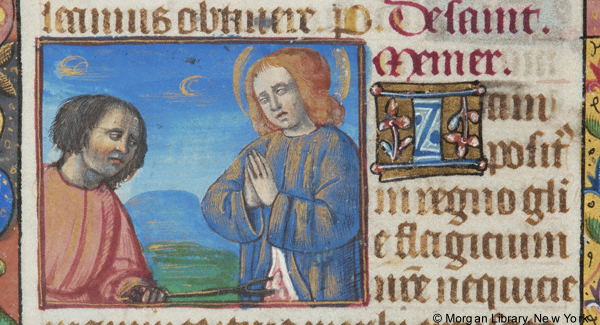 leamus obtinere p. De saint.
Memer.
Iam
posit⁹
in regno gli
e flagicium
nr̄e nequicie
© Morgan Library, New York